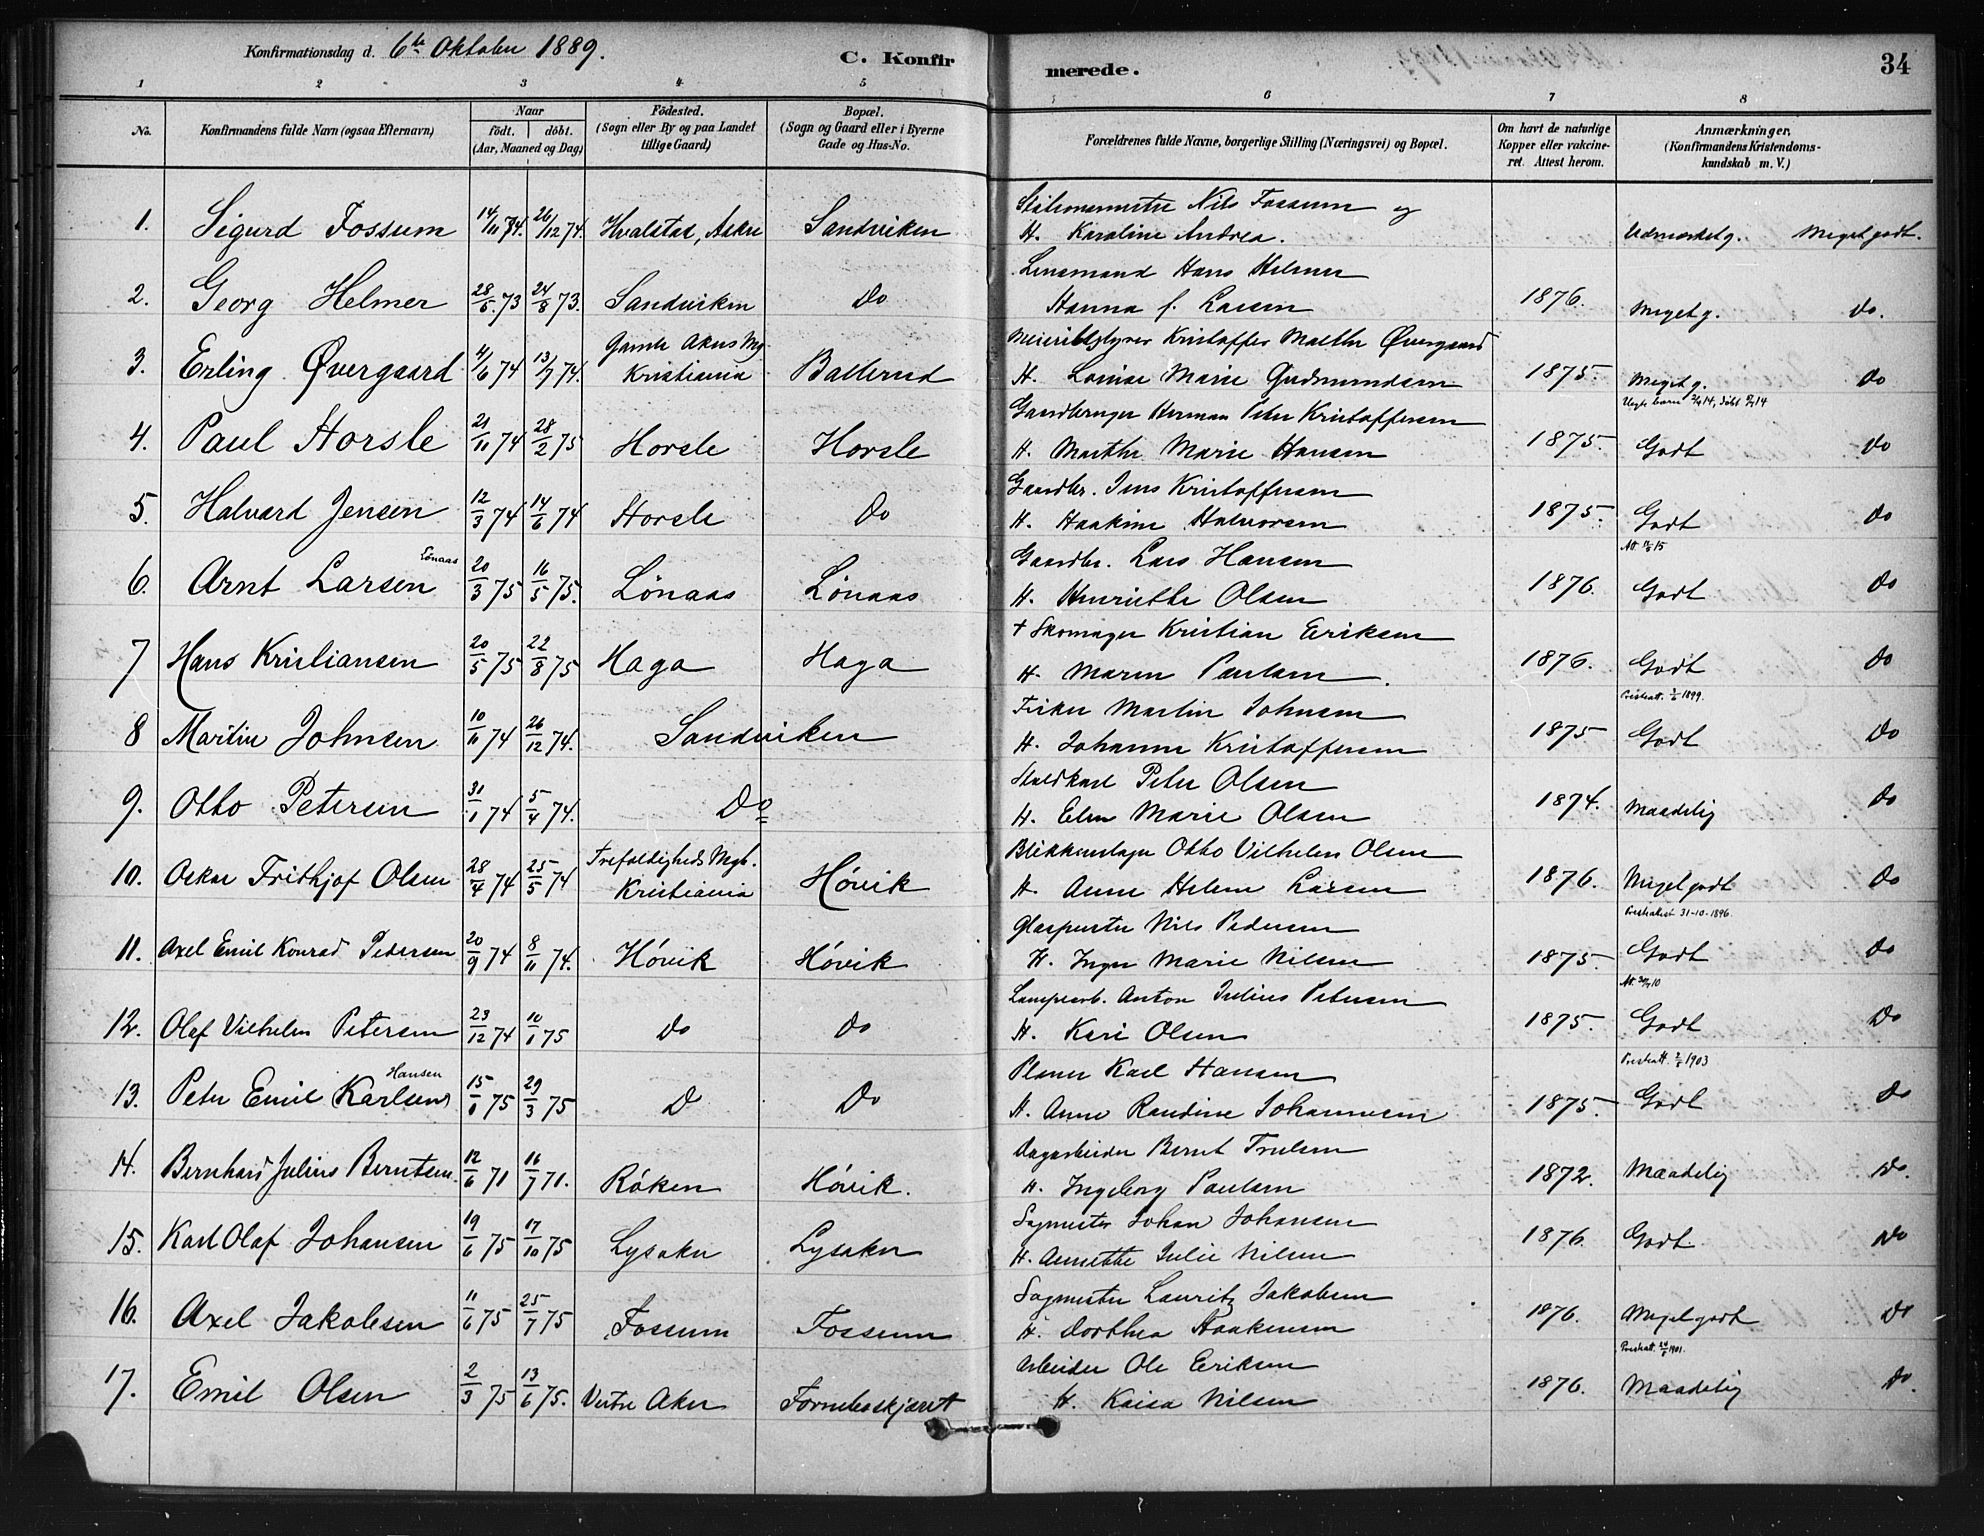 Konfirmationsdag d. 6te Oktober 1889. C. Konfirmerede. 34
1 2 3 4 5 6 7 8
No. Konfirmandens fulde Navn (ogsaa Efternavn) Naar födt. döbt. (Aar, Maaned og Dag) Födested. (Sogn eller By og paa Landet tillige Gaard) Bopæl. (Sogn og Gaard eller i Byerne Gade og Hus-No. Forældrenes fulde Navne, borgerlige Stilling (Næringsvei) og Bopæl. Om havt de naturlige Kopper eller vakcineret. Attest herom. Anmærkninger, (Konfirmandens Kristendomskundskab m. V.)
Stationsmester Nils Fossum og
1. Sigurd Fossum 14/11 74. 26/12 74. Hvalstad, Asker Sandviken H. Karoline Andrea. Udmærket g. Meget godt.
Lensmand Hans Helmer
2. Georg Helmer 28/5. 73 24/8 73. Sandviken Do Hanna f. Larsen 1876. Meget g. Do.
Gamle Akers Mg. Meieribestyrer Kristoffer Møller Øvergaard
3. Erling Øvergaard 4/6 74 13/7 74. Kristiania Ballerud H. Louise Marie Gudmundsen 1875. Meget g. Do
Gaardbruger Herman Peter Kristoffersen
4. Paul Horsle 21/11 74 28/2 75 Horsle Horsle H. Marthe Marie Hansen 1875. Godt Do
Gaardbr. Jens Kristoffersen
5. Halvard Jensen 12/3 74 14/6 74 Horsle Do H. Haakine Halvorsen 1875. Godt Do
Lönaas Gaardbr. Lars Hansen
6. Arnt Larsen 20/3 75 16/5 75. Lönaas Lönaas H. Henriette Olsen 1876. Godt Do
† Skomager Kristian Eriksen
7 Hans Kristiansen 20/5 75 22/8 75 Haga Haga H. Maren Paulsen. 1876. Godt Do
Fisker Martin Johnsen Presteatt. 1899.
8 Martin Johnsen 10/11 74 26/12 74. Sandviken H. Johanne Kristoffersen 1875 Godt Do
Staldkarl Peter Olsen
9. Otto Petersen 31/1 74 5/4 74. Do H. Elen Marie Olsen 1874. Maadelig Do
Trefoldigheds Mgh. Blikkenslager Otto Vilhelm Olsen
10. Oskar Frithjof Olsen 28/4 74 25/5 74 Kristiania Hövik H. Anne Helene Larsen 1876. Meget godt Do
Glaspuster Nils Pedersen Presteattest 31-10-1896.
11. Axel Emil Konrad Pedersen 20/9 74 8/11 74. Hövik Hövik H. Inger Marie Nilsen 1875. Godt Do
Lampearb. Anton Julius Petersen
12. Olaf Vilhelm Petersen 23/12 74 10/1 75 Do Do H. Kari Olsen 1875. Godt Do
Hansen Karl Hansen Presteatt. 1903
13. Peter Emil Karlsen 15/1 75 29/3 75 D Do H. Anne Randine Johannesen 1875. Godt Do
Dagarbeider Bernt Trulsen
14. Bernhard Julius Berntsen 12/6 71 16/7 71. Röken Hövik. H. Ingeborg Paulsen 1872. Maadelig Do.
Sagmester Johan Johansen
15. Karl Olaf Johansen 19/6 75 17/10 75 Lysaker Lysaker H. Annette Julie Nilsen 1876. Godt. Do
Sagmester Lauritz Jakobsen
16. Axel Jakobsen 11/6 75 25/7 75 Fossum Fossum H. Dorthea Haakensen 1876. Meget godt Do
Arbeider Ole Eriksen Presteatt. 1901.
17. Emil Olsen 2/3 75 13/6 75. Vestre Aker Forneboskjæret H. Kaisa Nilsen 1876. Maadelig Do.